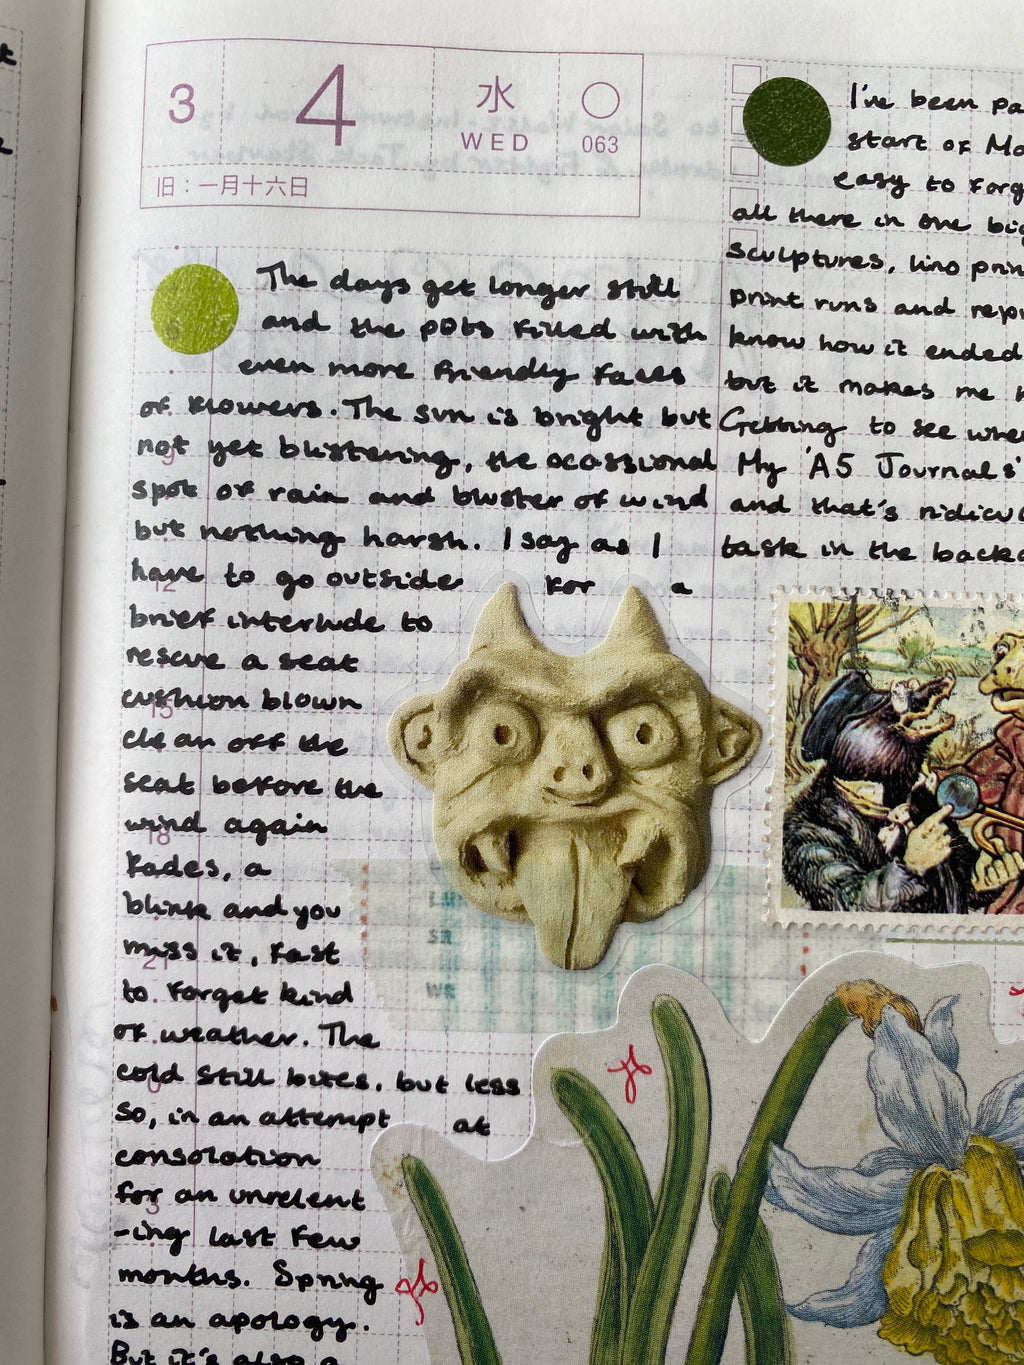 3
4
水
WED
063
旧：一月十六日
The days get longer still
and the pots filled with
even more friendly faces
of flowers. The sun is bright but
not yet blistering, the ocassional
spot of rain and bluster of wind
but nothing harsh. I say as I
have to go outside for a
brief interlude to
rescue a seat
cushion blown
clean off the
seat before the
wind again
fades, a
blink and you
miss it, fast
to forget kind
of weather. The
cold still bites, but less
so, in an attempt at
consolation
for an unrelent
-ing last few
months. Spring
is an apology.
But it's also a
9
12
15
18
21
0
3
I've been pa
start of Ma
easy to forg
all there in one big
sculptures, lino prin
print runs and repr
know how it ended
but it makes me
Getting to see whe
My 'A5 Journals'
and that's ridicu
task in the backg
SR